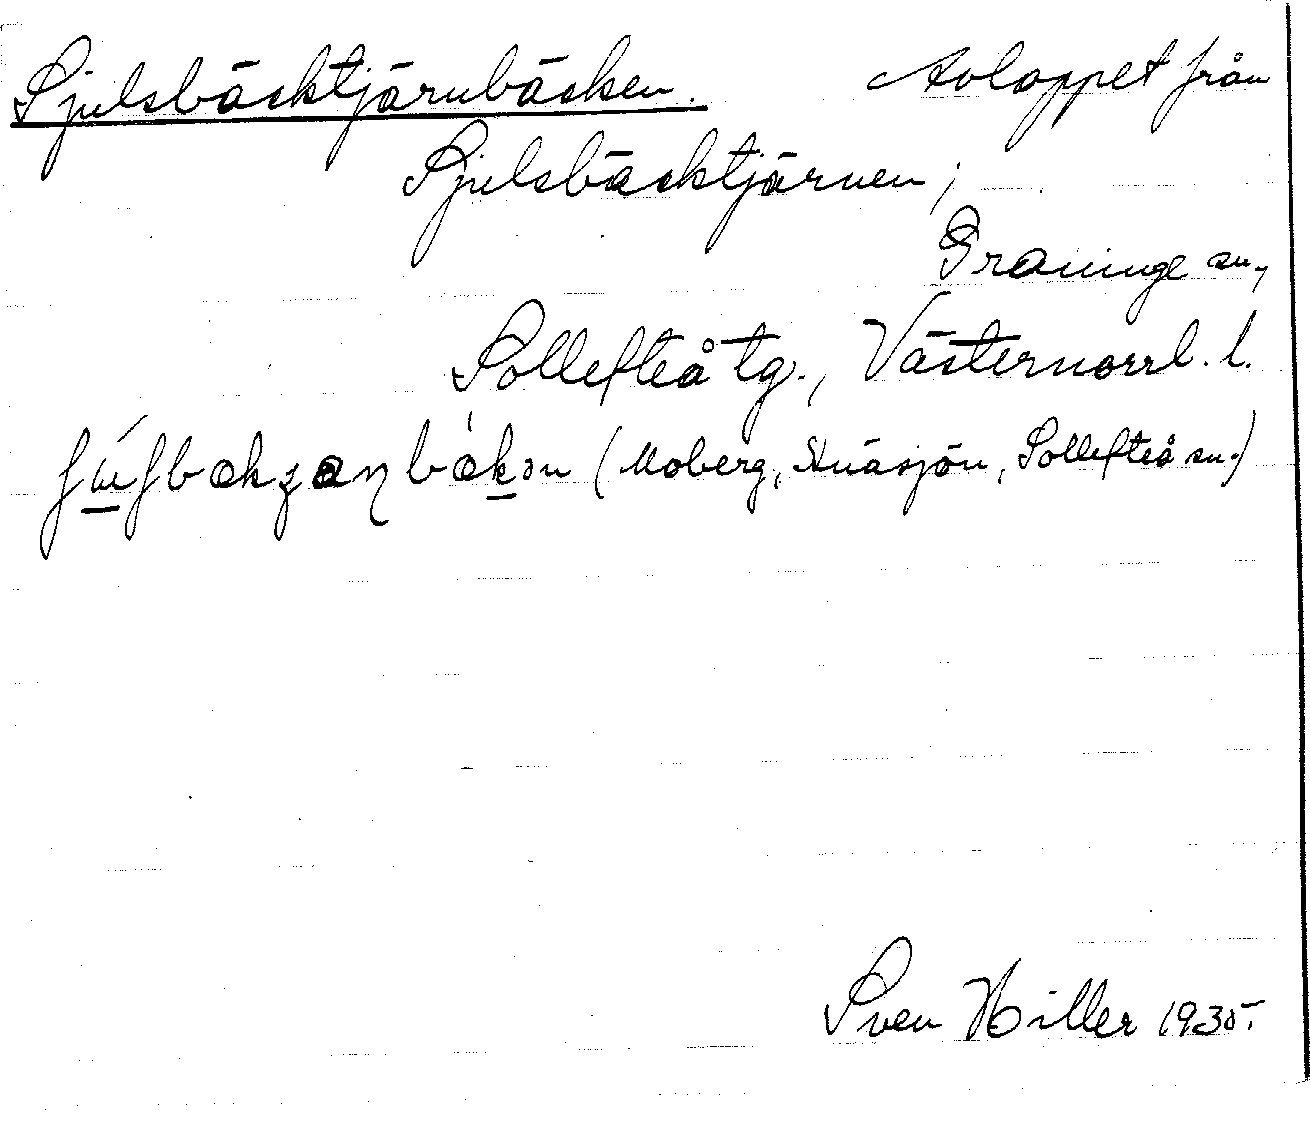 Sjulsbäcktjärnbäcken. Avloppet från
Sjulsbäcktjärnen;
Graninge sn,
Sollefteå tg., Västernorrl. l.
(Moberg, Anäsjön, Sollefteå sn.)
Sven Hiller 1935.